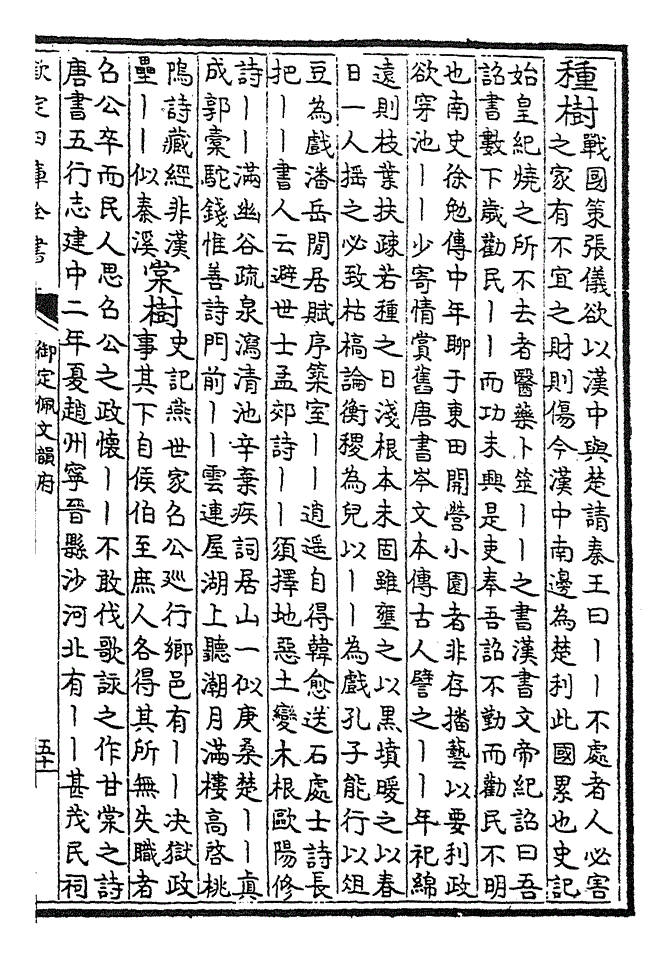 種樹
戰國策張儀欲以漢中與楚請秦王曰丨丨不處者人必害
之家有不宜之財則傷今漢中南邊為楚利此國累也史記
始皇紀燒之所不去者醫藥卜筮丨丨之書漢書文帝紀詔曰吾
詔書數下歲勸民丨丨而功未興是吏奉吾詔不勤而勸民不明
也南史徐勉傳中年聊于東田開營小園者非存播藝以要利政
欲穿池丨丨少寄情賞舊唐書岑文本傳古人譬之丨丨年祀綿
遠則枝葉扶疎若種之日淺根本未固雖壅之以黑墳暖之以春
日一人搖之必致枯槁論衡稷為兒以丨丨為戲孔子能行以俎
豆為戲潘岳閒居賦序築室丨丨逍遥自得韓愈送石處士詩長
把丨丨書人云避世士孟郊詩丨丨須擇地惡土變木根歐陽修
詩丨丨滿幽谷疏泉瀉清池辛棄疾詞居山一似庚桑楚丨丨真
成郭橐駝錢惟善詩門前丨丨雲連屋湖上聽潮月滿樓高啓桃
隖詩藏經非漢
壘丨丨似秦溪
棠樹
史記燕世家召公廵行鄉邑有丨丨决獄政
事其下自侯伯至庶人各得其所無失職者
召公卒而民人思召公之政懷丨丨不敢伐歌詠之作甘棠之詩
唐書五行志建中二年夏趙州寧晉縣沙河北有丨丨甚茂民祠
欽定四庫全書
御定佩文韻府
五十